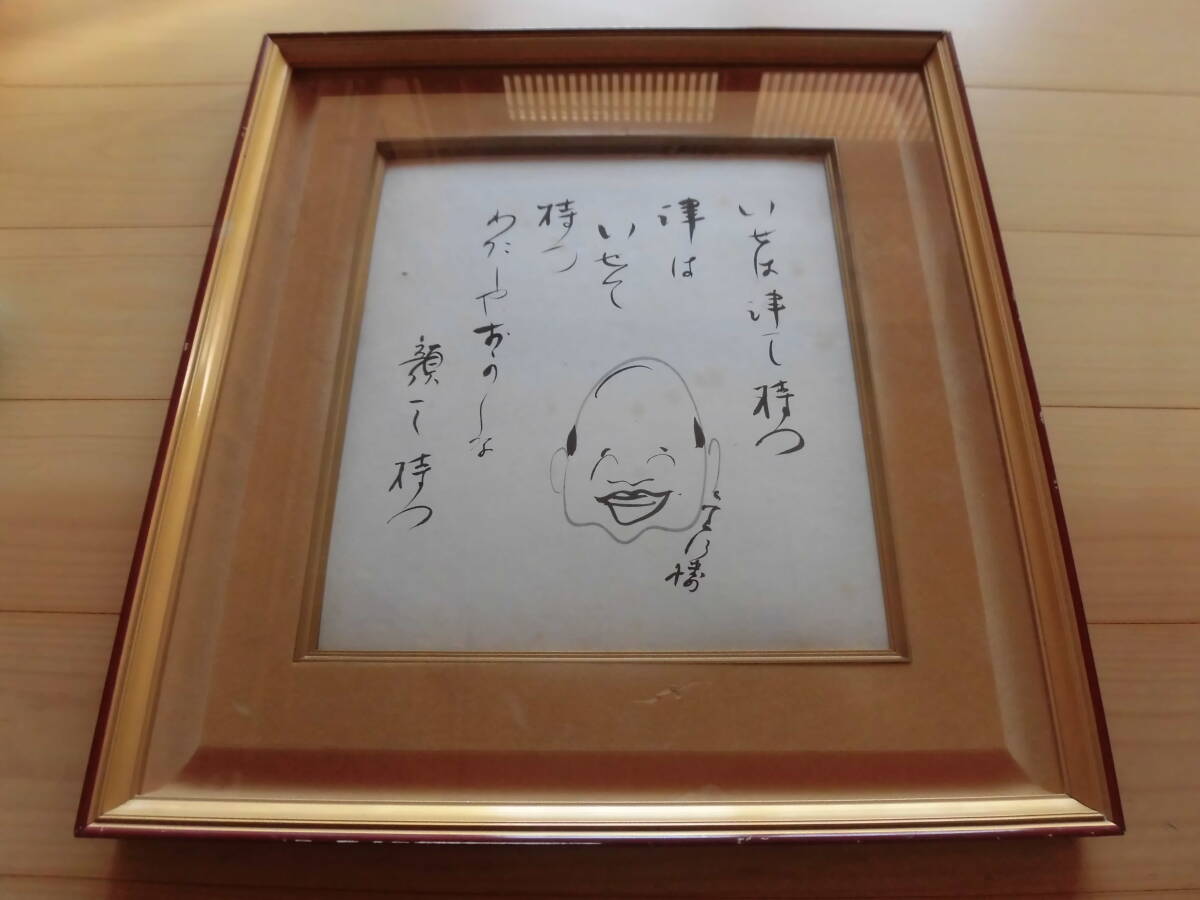 いせは津で持つ
津は
いせで
持つ
わたしやおかしな
顔で持つ